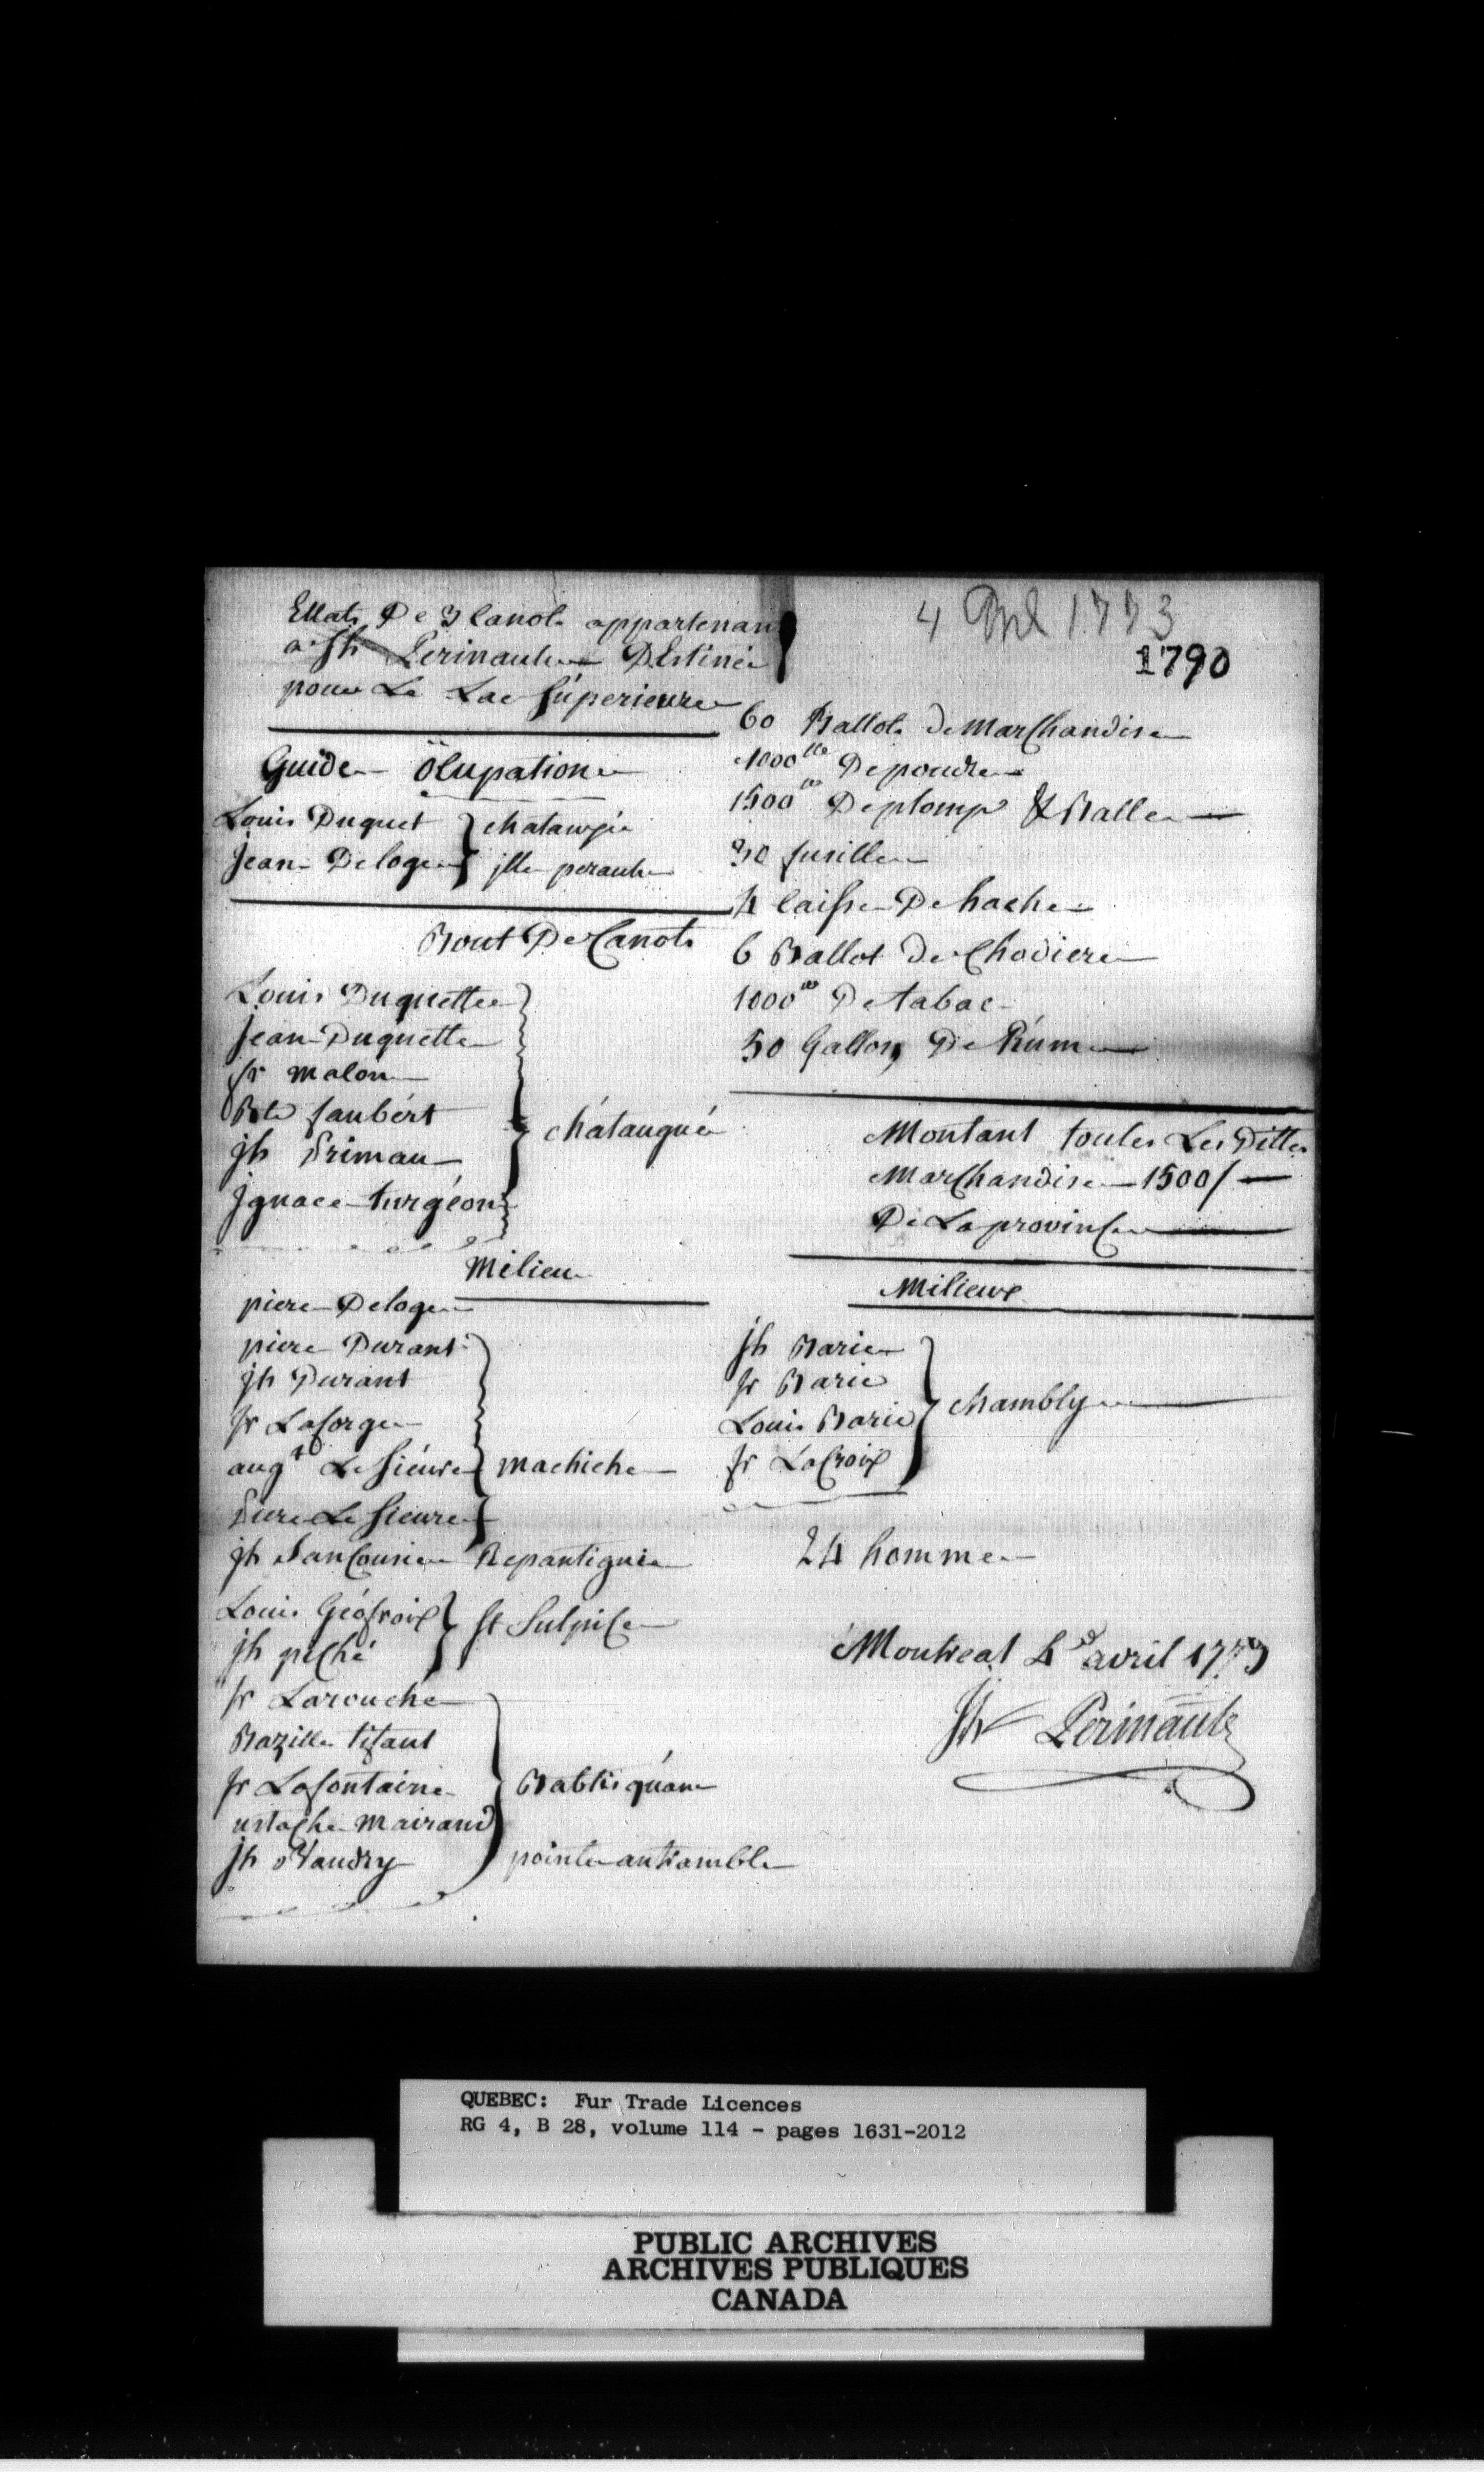 Ettats De 3 Canots appartenan
a Jh Perinaulte Destinée
pour Le Lac Supérieure
Guide Ocupatione
Louis Duquet chatauguie
Jean Deloge jlle peraulte
Bout De Canots
Louis Duquette
Jean Duquette
fr malon
Bte faubért
jh Primau
Jgnace turgéon
chátaugué
Milieu
piere Deloge
piere Durant
jh Durant
fr Laforge
augt Le Siéure
Piere Le Sieure
machiche
jh SanCousie Repantignie
Louis Géofroix
jh piché
St Sulpice
fr Larouche
Bazille tifaut
fr Lafontaine
ustache Mairand
Batisquáne
jh Vaudry pointe autramble
4 Apl 1773
1790
60 Ballots de Marchandise
1000lle De poudre
1500lle De plomp & Balle
30 fusille
4 Caisse De hache
6 Ballot de Chodiere
1000lle De tabac
50 Gallons De Rum
Montant toutes Les Dittes
Marchandise 1500/
De La province
Milieux
jh Barie
fr Barie
Louis Barie
fr Lacroix
chambly
24 homme
Montreal 4e avril 1773
Jh Perinault
QUEBEC: Fur Trade Licences
RG 4, B 28, volume 114 - pages 1631-2012
PUBLIC ARCHIVES
ARCHIVES PUBLIQUES
CANADA